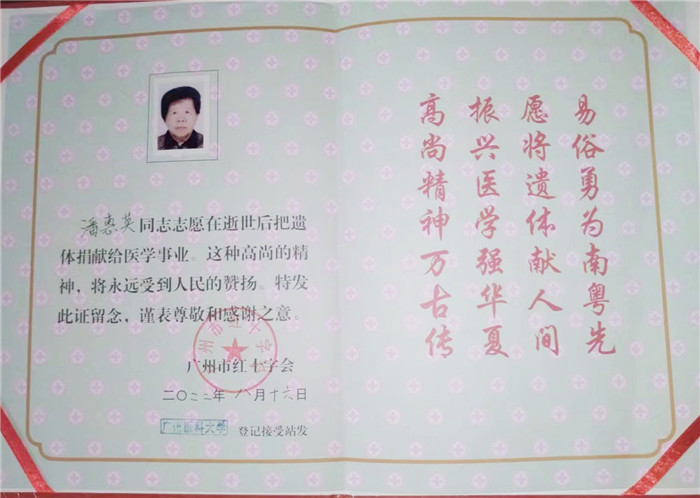 潘惠英同志志愿在逝世后把遗
体捐献给医学事业。这种高尚的精
神，将永远受到人民的赞扬。特发
此证留念，谨表尊敬和感谢之意。
广州市红十字会
二〇二二年八月十六日
广州医科大学 登记接受站发
易俗勇为南粤先
愿将遗体献人间
振兴医学强华夏
高尚精神万古传